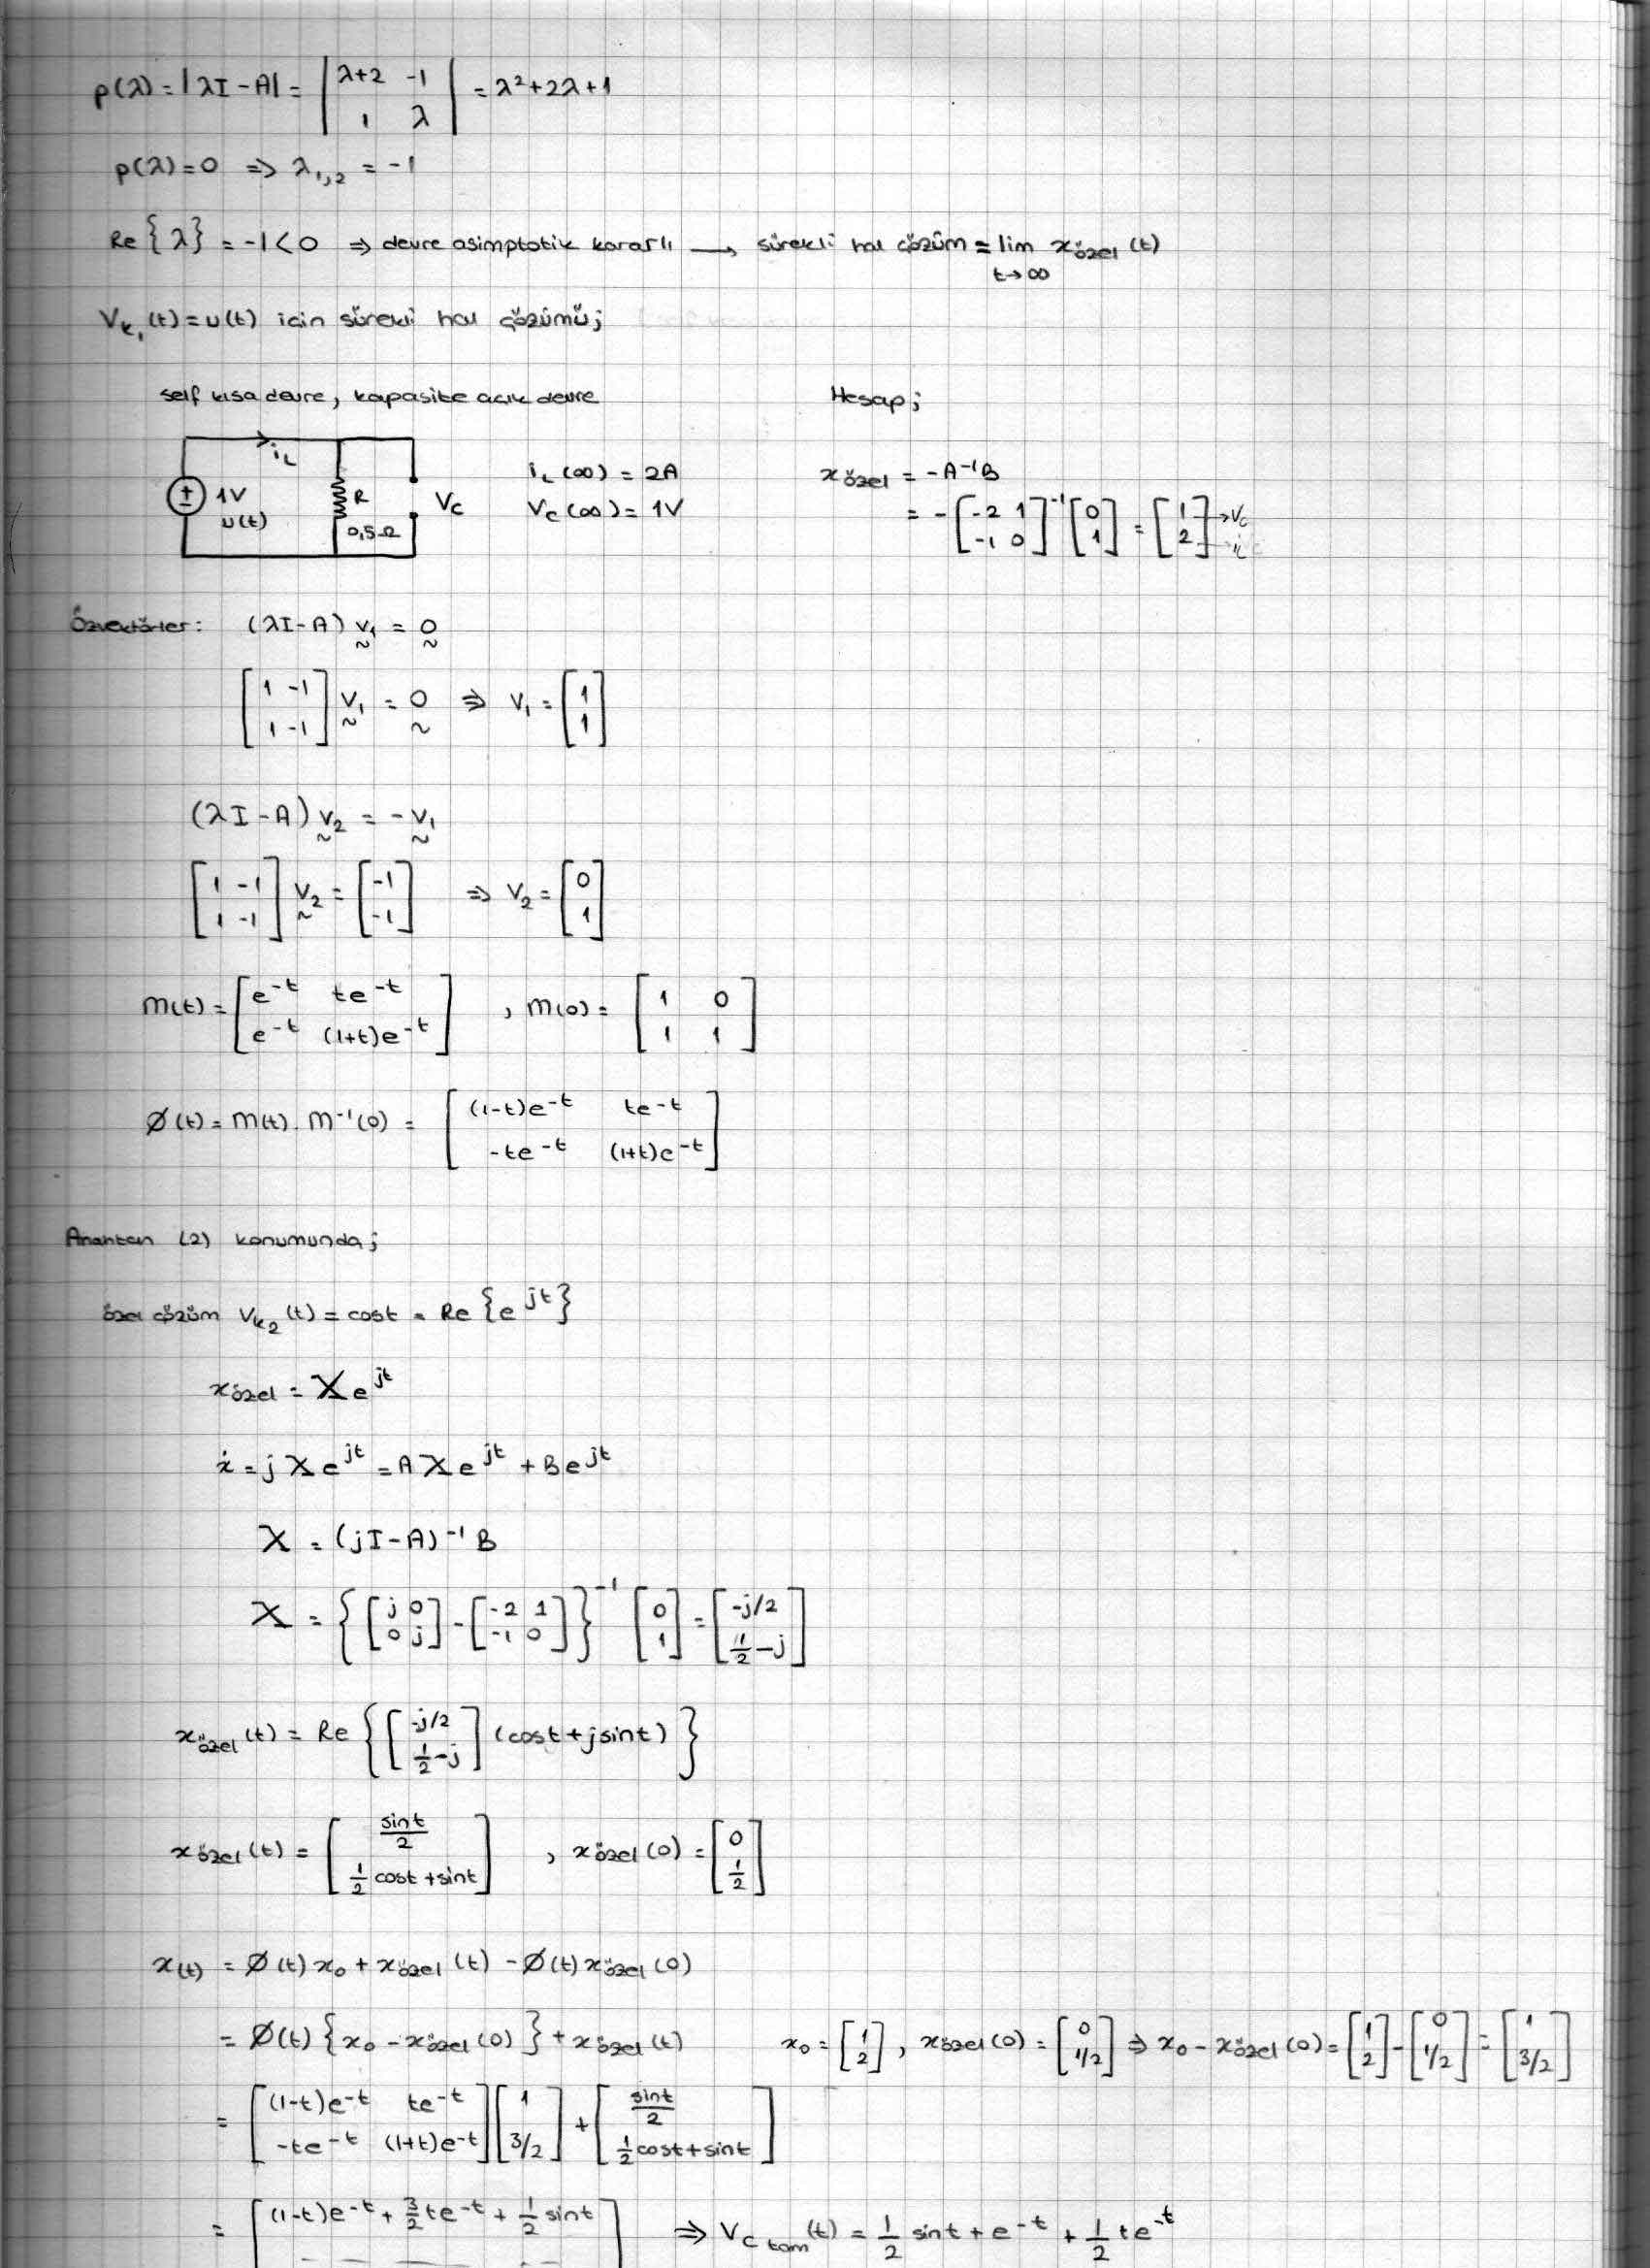 p(λ) = |λI - A| = | λ+2 -1 ; 1 λ | = λ²+2λ+1
p(λ)=0 ⇒ λ₁,₂ = -1
Re{λ} = -1<0 ⇒ devre asimptotik kararlı → sürekli hal çözüm = lim t→∞ xözel(t)
Vk₁(t)=u(t) için sürekli hal çözümü;
self kısa devre, kapasite açık devre
Hesap;
iL
1V u(t)
R 0,5Ω
Vc
iL(∞) = 2A
Vc(∞) = 1V
xözel = -A⁻¹B
= -[-2 1 ; -1 0]⁻¹ [0 ; 1] = [1 ; 2] → Vc → iL
Özvektörler: (λI-A) v₁ = 0
[1 -1 ; 1 -1] v₁ = 0 ⇒ v₁ = [1 ; 1]
(λI-A) v₂ = -v₁
[1 -1 ; 1 -1] v₂ = [-1 ; -1] ⇒ v₂ = [0 ; 1]
M(t) = [e^-t te^-t ; e^-t (1+t)e^-t] , M(0) = [1 0 ; 1 1]
Ø(t) = M(t). M⁻¹(0) = [(1-t)e^-t te^-t ; -te^-t (1+t)e^-t]
Anahtarın (2) konumunda;
özel çözüm Vk₂(t) = cost = Re{e^jt}
xözel = X e^jt
ẋ = j X e^jt = A X e^jt + B e^jt
X = (jI-A)⁻¹ B
X = {[j 0 ; 0 j] - [-2 1 ; -1 0]}⁻¹ [0 ; 1] = [-j/2 ; 1/2 - j]
xözel(t) = Re{[-j/2 ; 1/2 - j] (cost+jsint)}
xözel(t) = [sint/2 ; 1/2 cost+sint] , xözel(0) = [0 ; 1/2]
x(t) = Ø(t) x₀ + xözel(t) - Ø(t) xözel(0)
= Ø(t) {x₀ - xözel(0)} + xözel(t) x₀ = [1 ; 2] , xözel(0) = [0 ; 1/2] ⇒ x₀ - xözel(0) = [1 ; 2] - [0 ; 1/2] = [1 ; 3/2]
= [(1-t)e^-t te^-t ; -te^-t (1+t)e^-t] [1 ; 3/2] + [sint/2 ; 1/2 cost+sint]
= [(1-t)e^-t + 3/2 te^-t + 1/2 sint ⇒ Vc tam(t) = 1/2 sint + e^-t + 1/2 te^-t